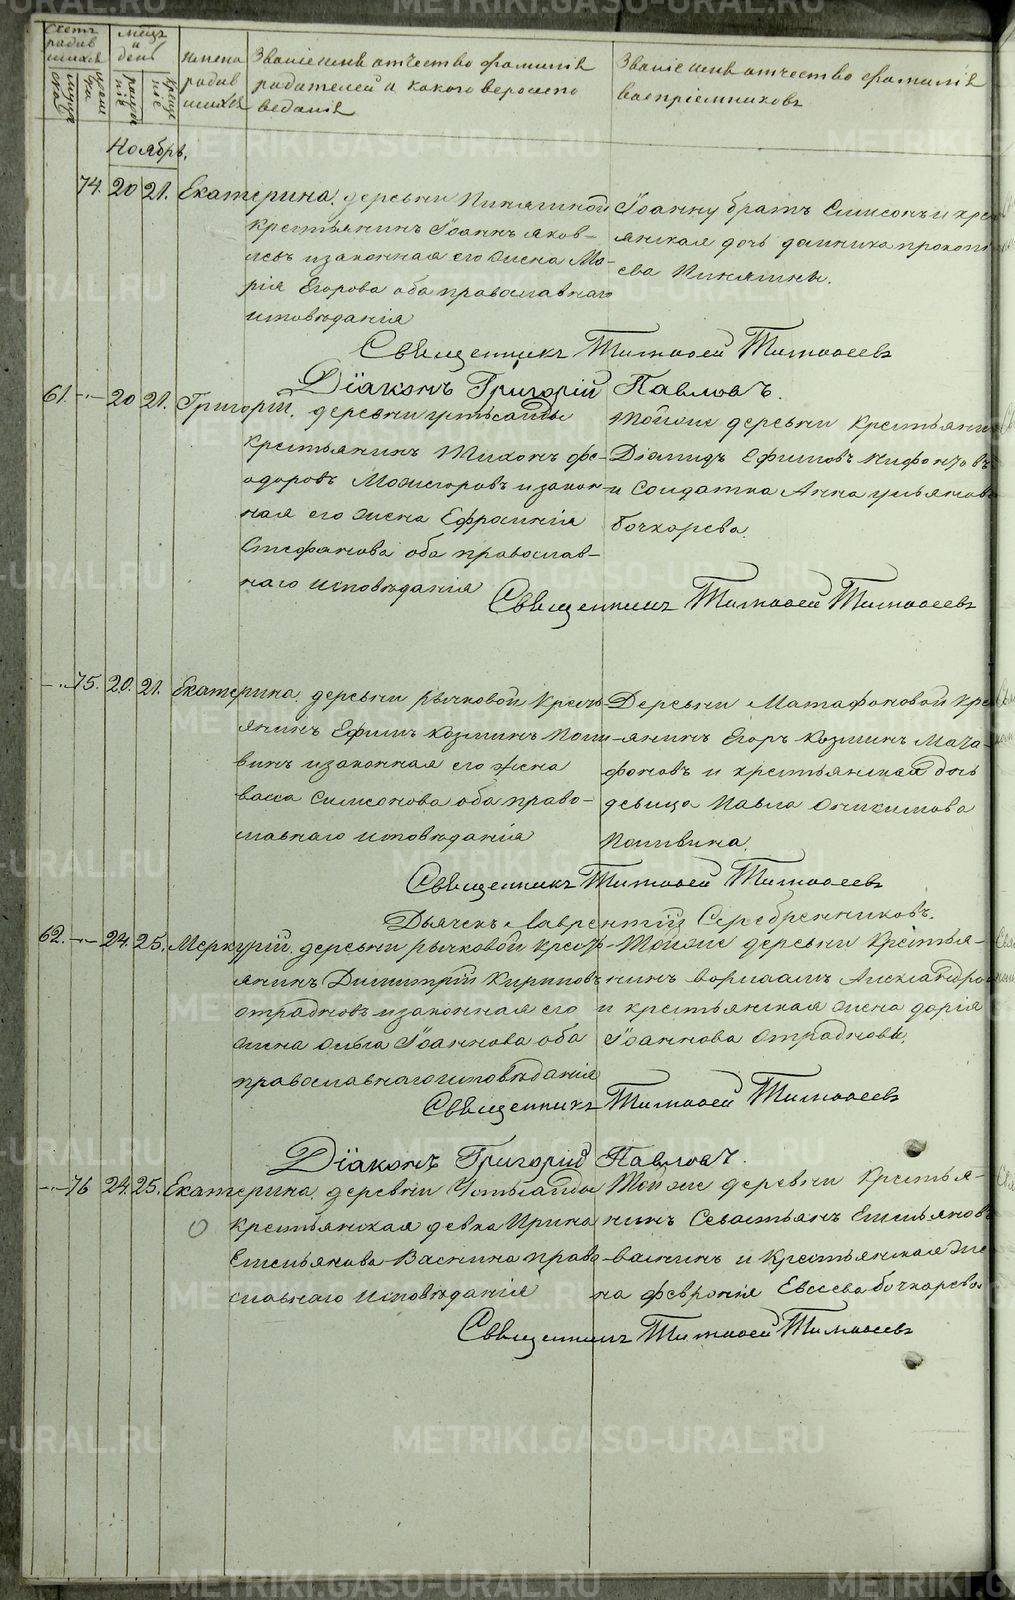 Счетъ родив шихся
Мѣцъ и день
имена родив шихся
Званіе имя отчество фамилія
родителей и какого вероиспо
веданія
Званіе имя отчество фамилія
воспріемниковъ
Ноябрь.
74. 20 21. Екатерина. деревни Пинягиной
крестьянинъ Іоаннъ Яков-
левъ и законная его жена Ма-
рія Егорова оба православнаго
исповѣданія
Іоанну братъ Симеонъ и крес
янская дочь Прокопь
ева Пинягины.
Священникъ Тимофей Тимофеевъ
Діаконъ Григорій Павловъ.
61. 20 21. Григорій. деревни
крестьянинъ Тихонъ Фе-
одоровъ и закон-
ная его жена Ефросинія
Стефанова оба православ-
наго исповѣданія
Тойже деревни крестьянин
Діамидъ Ефимовъ
и солдатка Анна Ульянова
Бочкарева.
Священникъ Тимофей Тимофеевъ
75. 20. 21. Екатерина. деревни Рычковой крестъ
янинъ Ефимъ Козминъ Поли
винъ и законная его жена
Васса Симеонова оба право-
славнаго исповѣданія
Деревни Матафоновой кре
янинъ Егоръ Козминъ Мата-
фоновъ и крестьянская дочь
девица Павла Онисимова
Поливина.
Священникъ Тимофей Тимофеевъ
Дьячекъ Лаврентій Серебренниковъ.
62. 24. 25. Меркурій. деревни Рычковой кресть
янинъ Димитрій Кириловъ
Отрадновъ и законная его
жена Ольга Іоаннова оба
православнаго исповѣданія
Тойже деревни Крестья-
нинъ Варлаамъ Александро
и крестьянская жена Дарія
Іоаннова Отраднова.
Священникъ Тимофей Тимофеевъ
Діаконъ Григорій Павловъ.
76 24. 25. Екатерина. деревни
Крестьянская девка Ирина
Емельянова Васнина право
славнаго исповѣданія
Тойже деревни Крестья-
нинъ Севастьянъ Емельяновъ
Васнинъ и Крестьянская же
на Февронія Евсеева Бочкарева
Священникъ Тимофей Тимофеевъ
METRIKI.GASO-URAL.RU